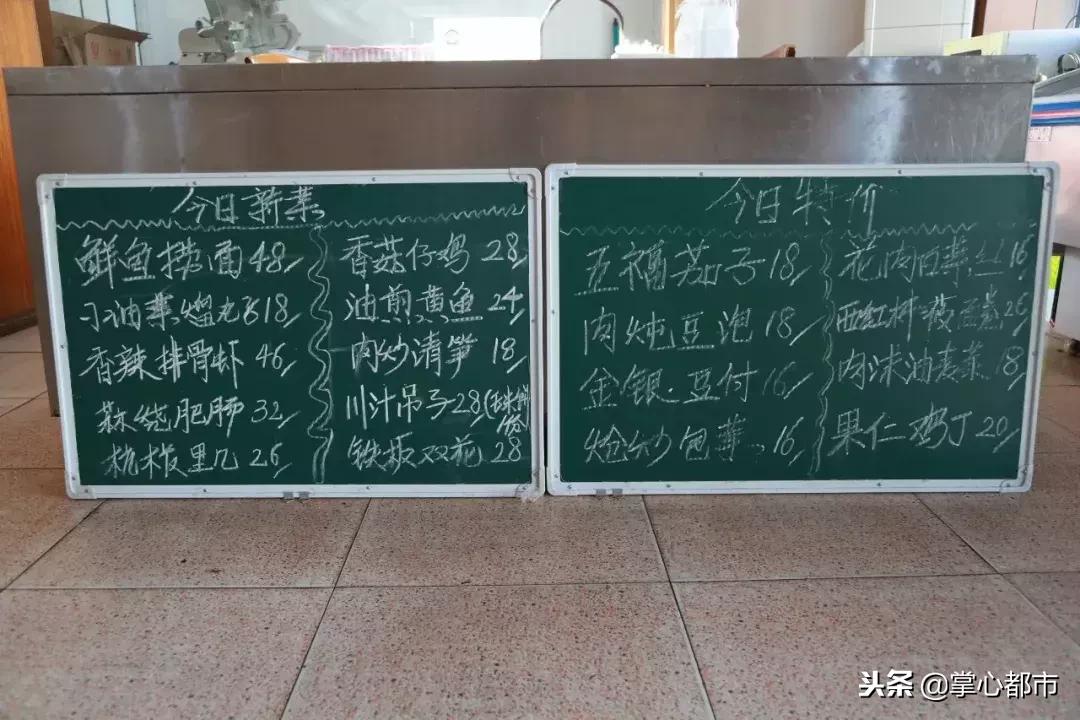 今日新菜
鲜鱼捞面48
小油菜熘丸子18
香辣排骨虾46
蒜烧肥肠32
杭椒里几26
香菇仔鸡28
油煎黄鱼24
肉炒清笋18
川汁吊子28
铁板双花28
今日特价
五福茄子18
肉炖豆泡18
金银豆付16
炝炒包菜16
花肉白菜丝16
西红柿
26
肉沫油麦菜18
果仁鸡丁20
头条@掌心都市